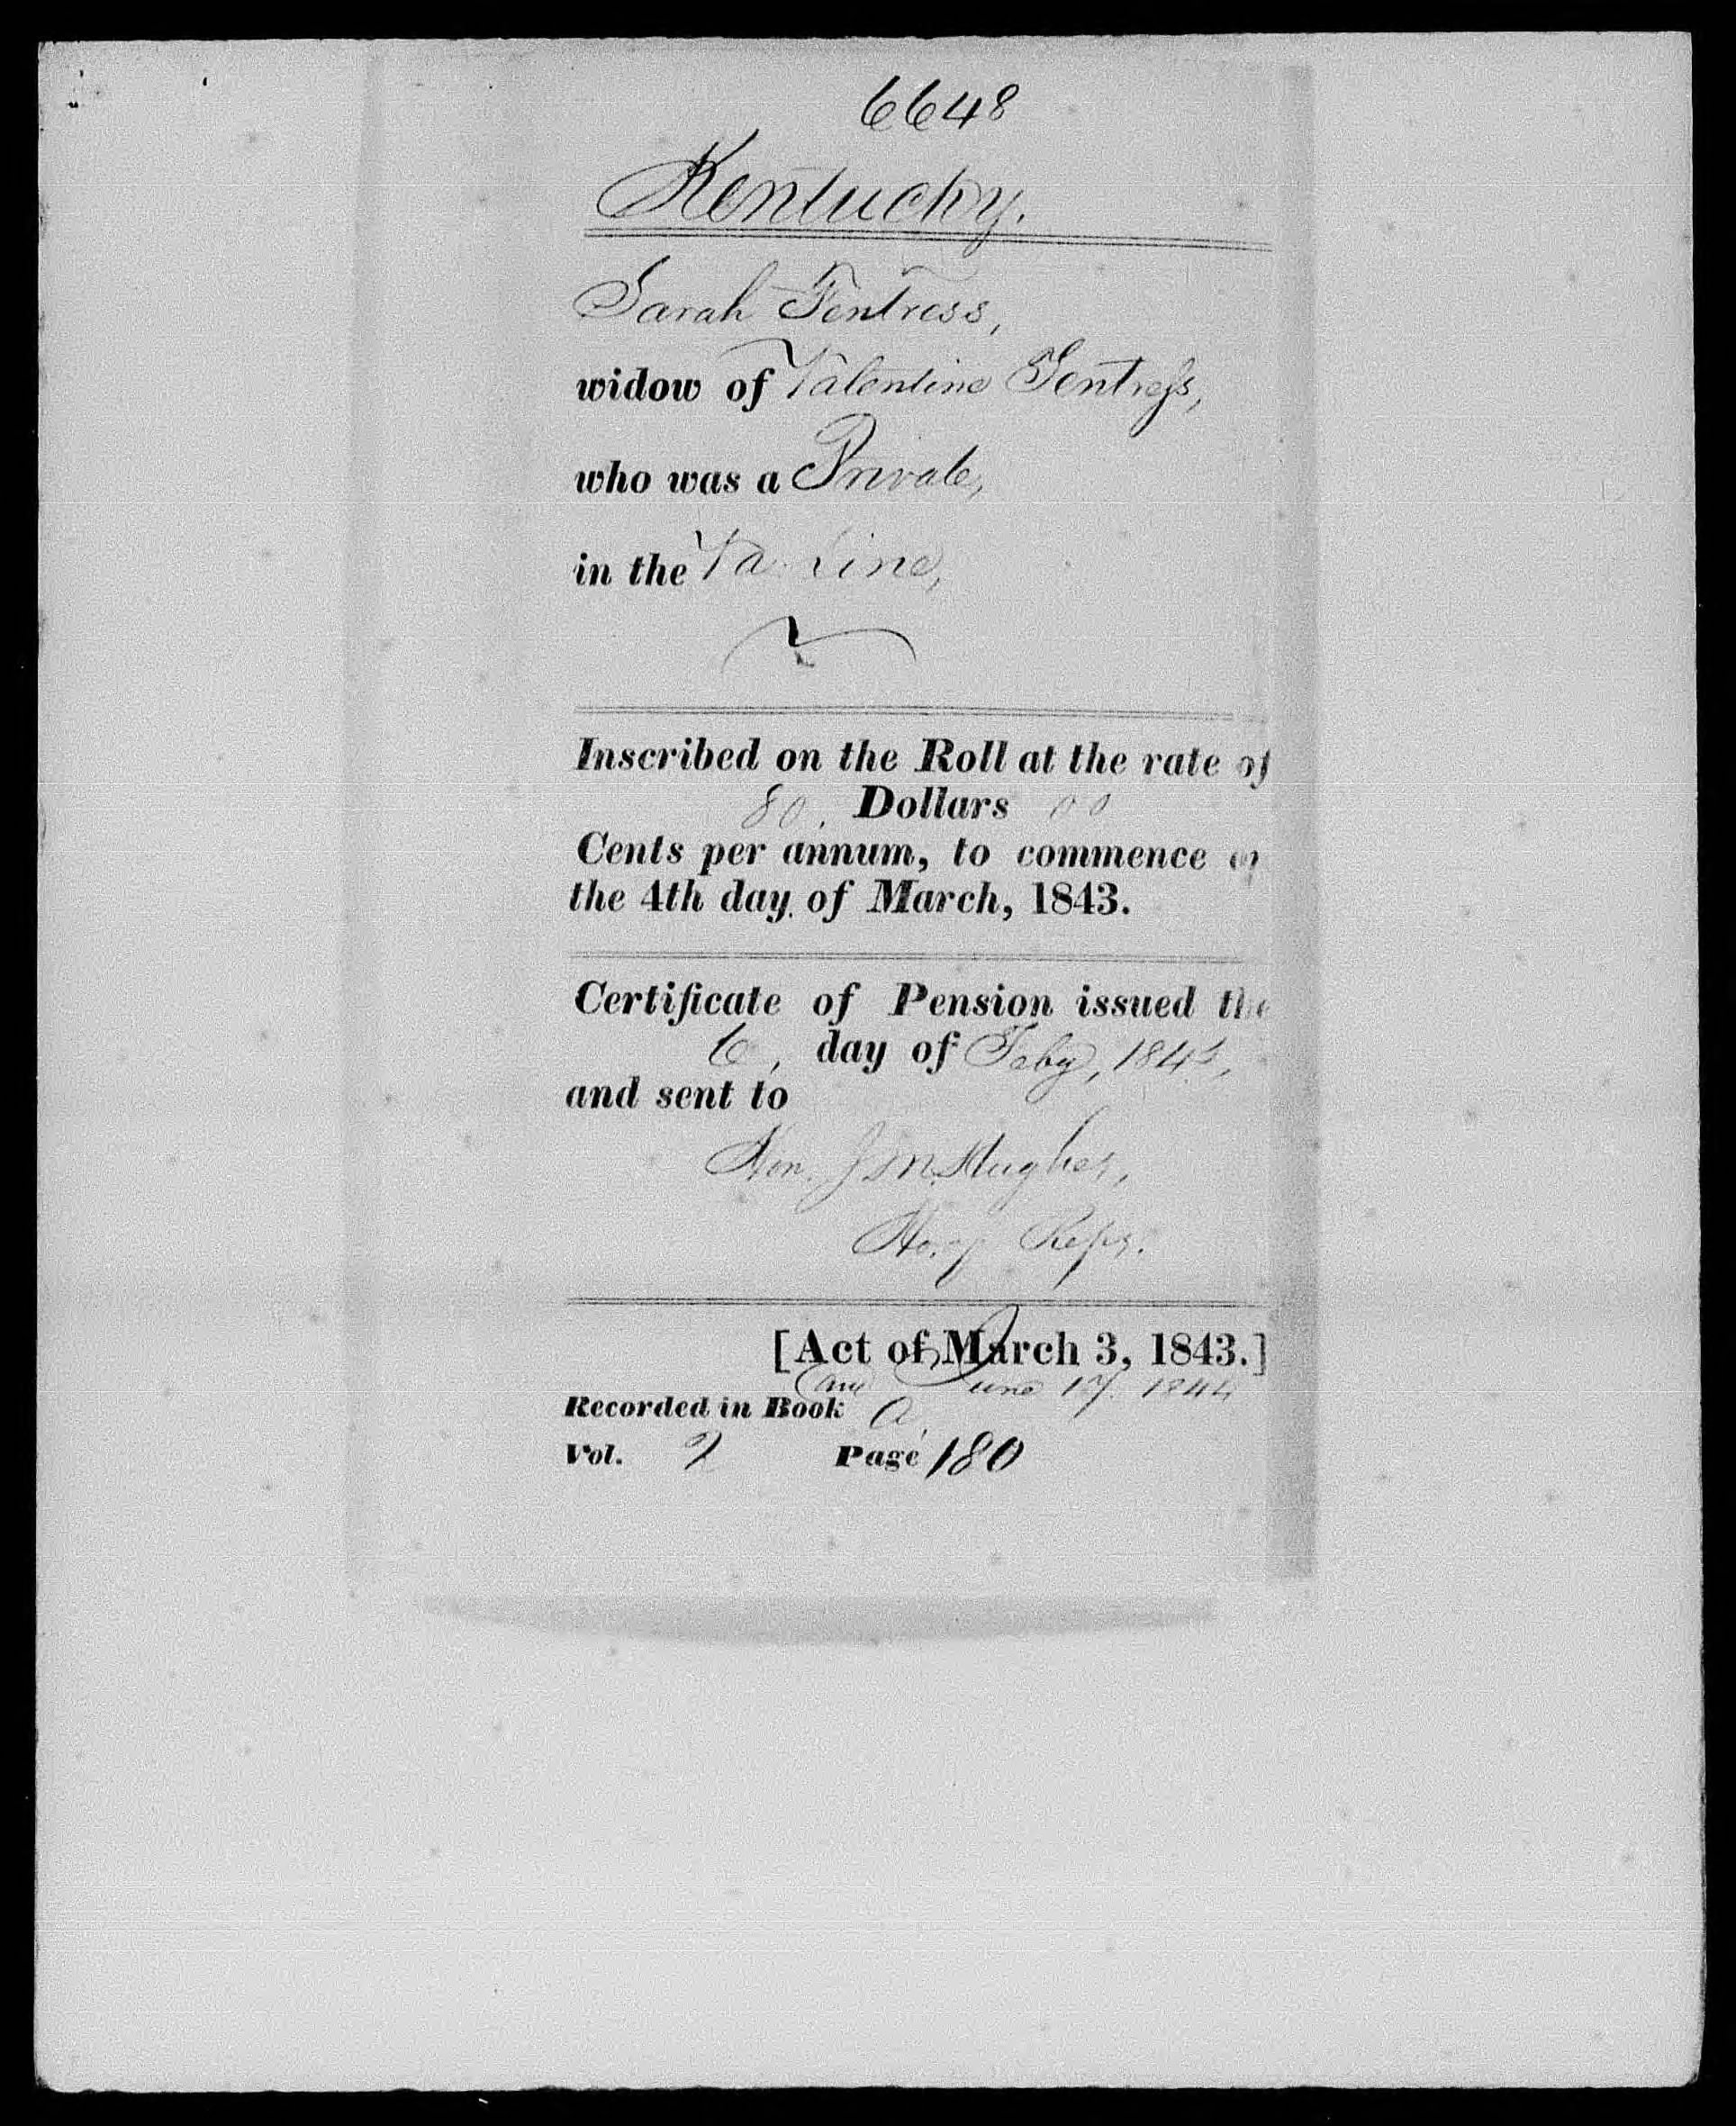 6648
Kentucky.
Sarah Fentress,
widow of Valentine Fentress,
who was a Private,
in the Va. Line,
Inscribed on the Roll at the rate of
80. Dollars 00
Cents per annum, to commence on
the 4th day of March, 1843.
Certificate of Pension issued the
6, day of Feby, 1845,
and sent to
Hon. Hughes,
Ho. of Reps.
[Act of March 3, 1843.]
and June 17. 1844
Recorded in Book A,
Vol. 2 Page 180